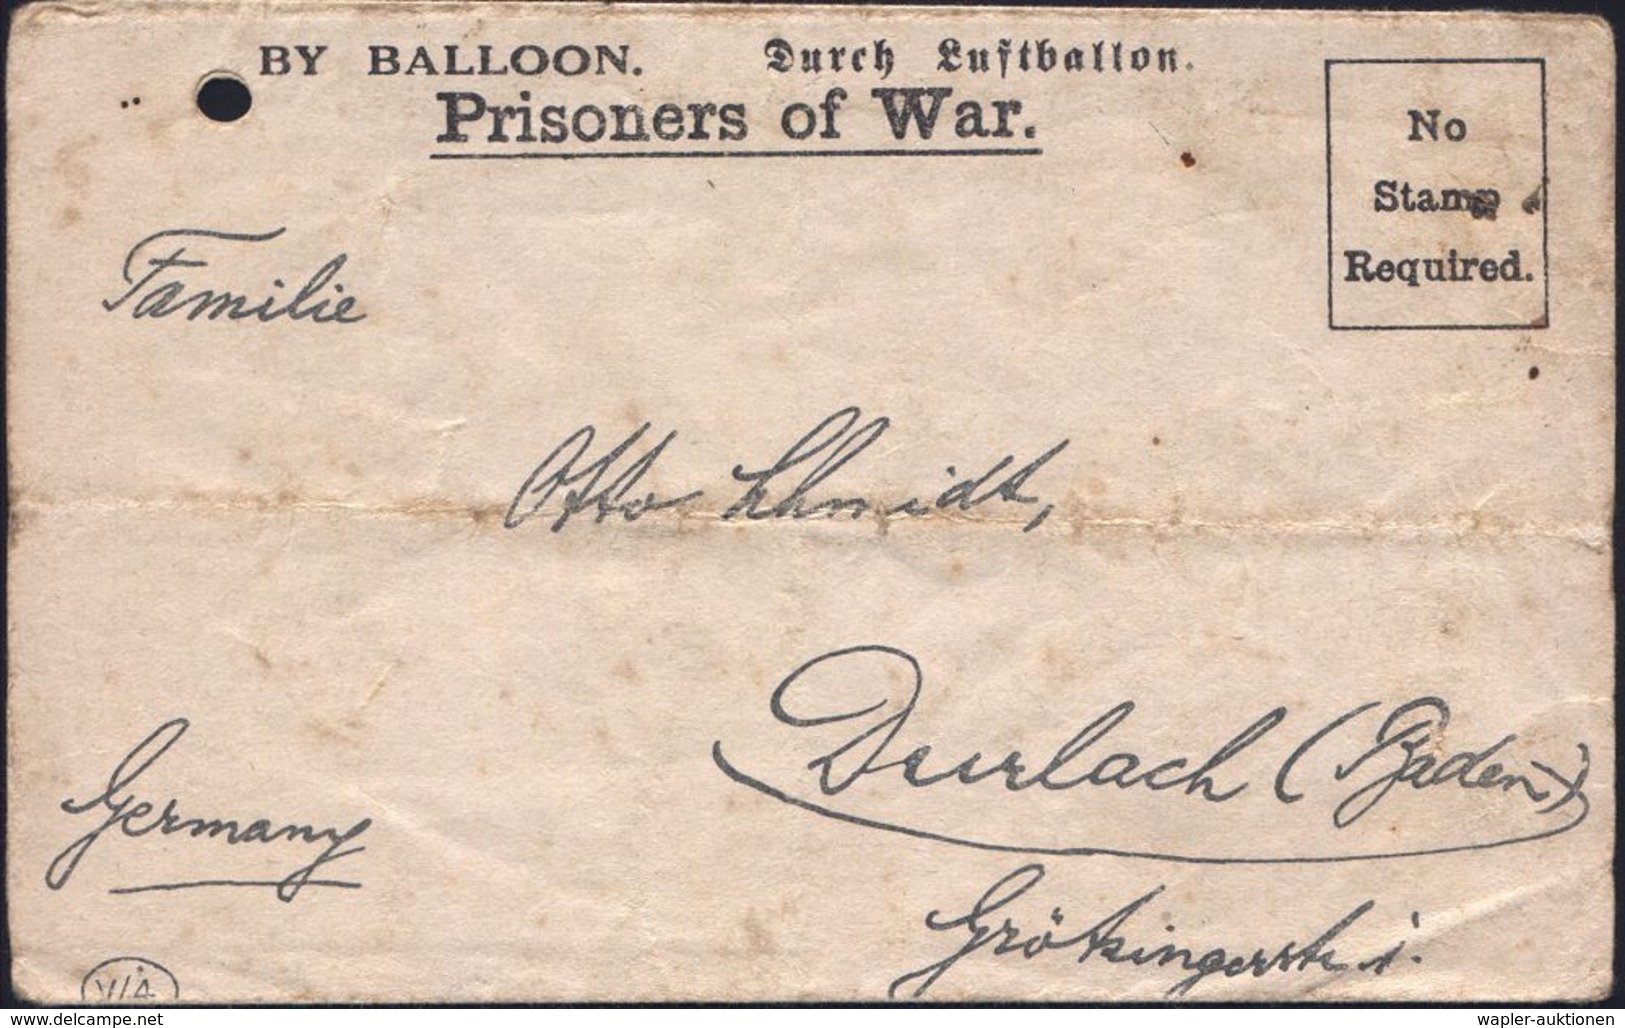 BY BALLOON. Durch Luftballon.
Prisoners of War.
No
Stamp
Required.
Familie
Otto Schmidt,
Durlach (Baden)
Germany
Grötzingerstr. 1.
V/A
www.delcampe.net
wapler-auktionen